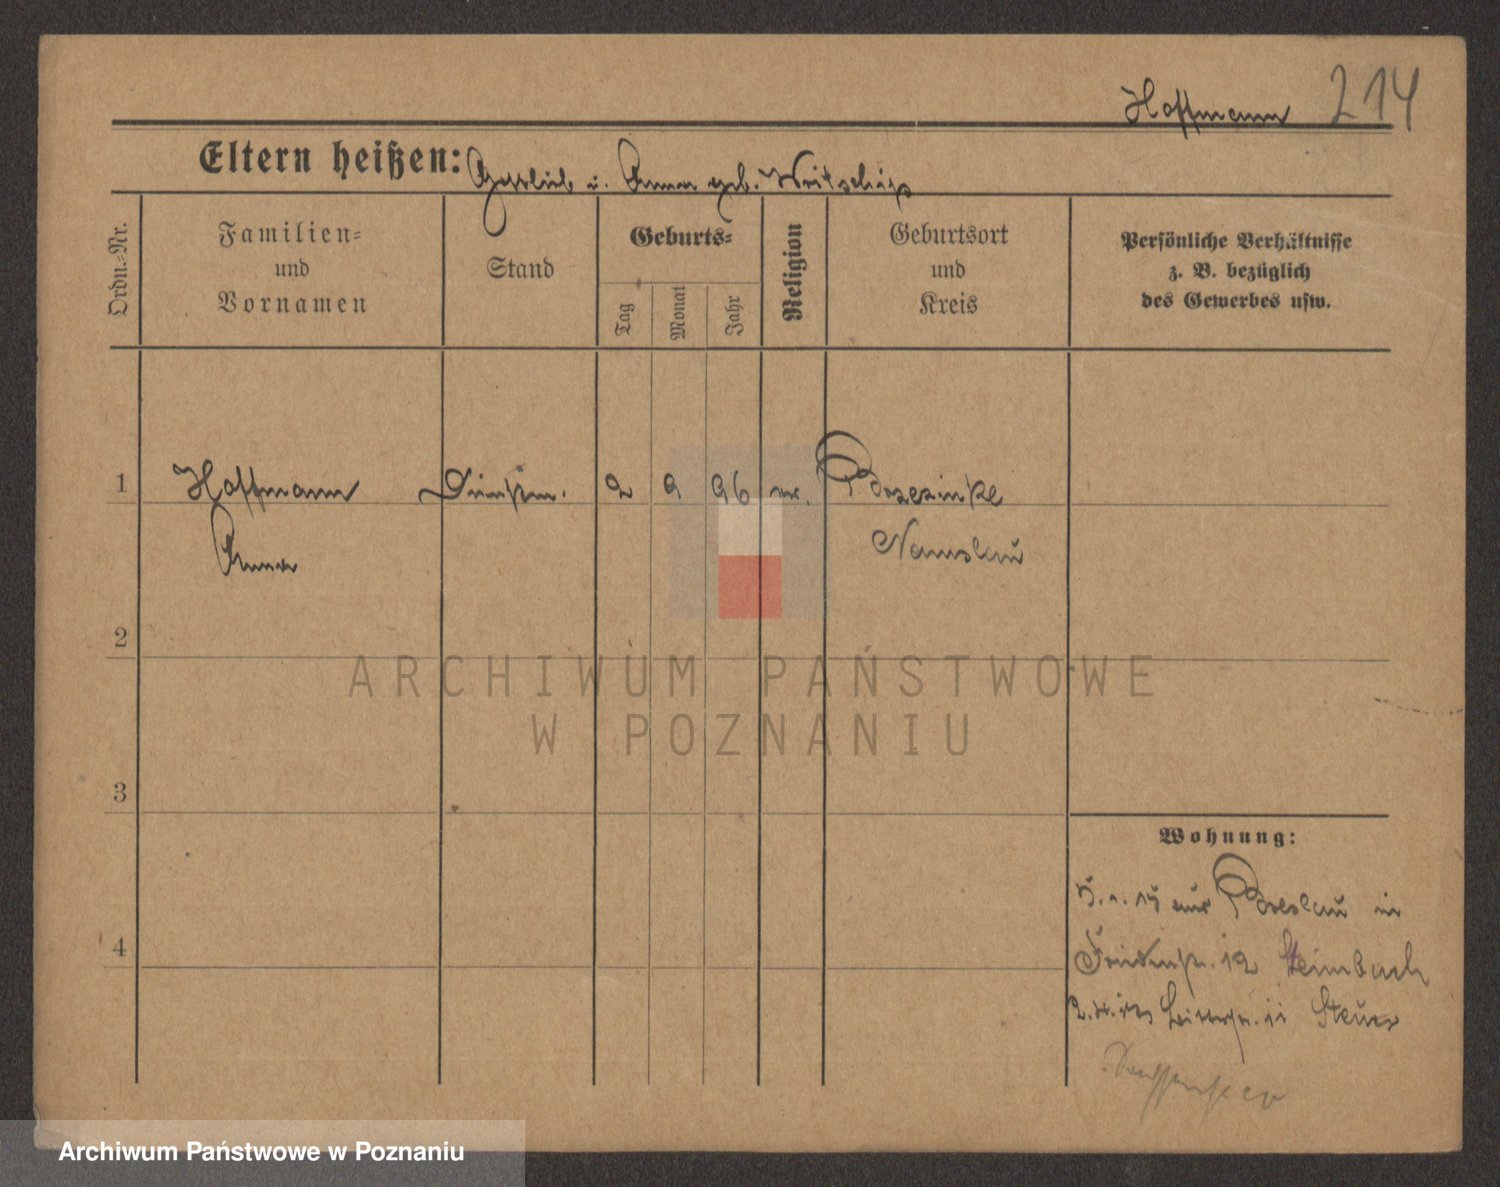 Hoffmann 214
Eltern heißen: Gottlieb u. Anna geb.
Ordn.-Nr.
Familien-
und
Vornamen
Stand
Geburts-
Tag
Monat
Jahr
Religion
Geburtsort
und
Kreis
Persönliche Verhältnisse
z. B. bezüglich
des Gewerbes usw.
1 Hoffmann Dienstm. 2 9 96 ev.
Anna Namslau
2
3
4
Wohnung:
aus Breslau in
12 Steinbach
11
ARCHIWUM PAŃSTWOWE
W POZNANIU
Archiwum Państwowe w Poznaniu